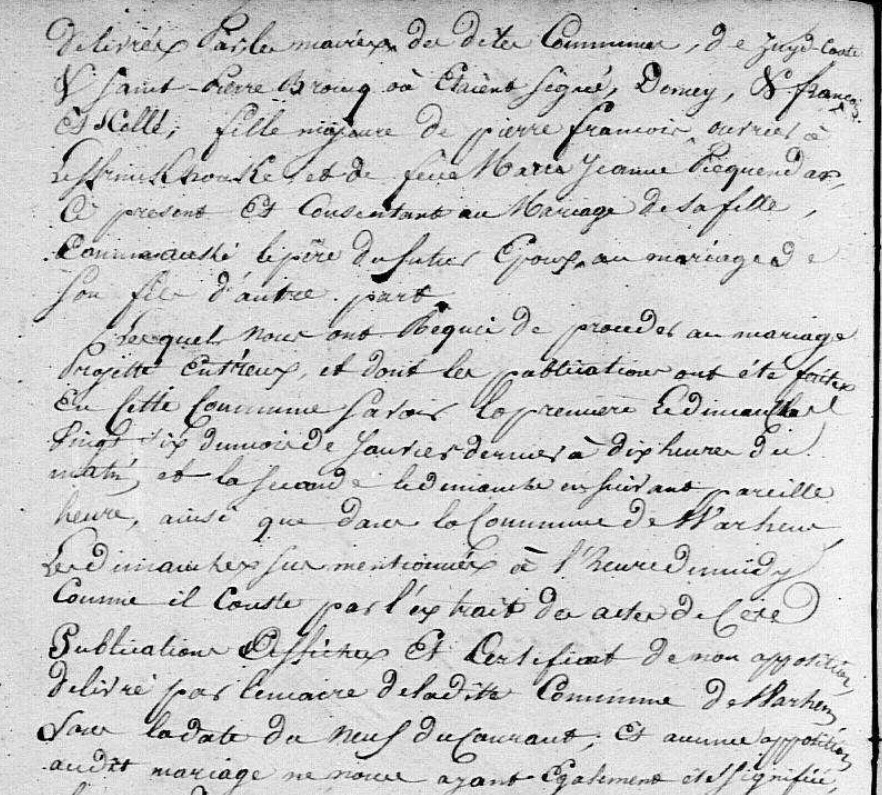 delivrés Par les maires des dites Communes, de Zuyd-Coote
& Saint-Pierre Brouq où Etaient Signé, Domey, & françois
fille majeure de pierre francois, ouvrier à
et de feue Marie Jeanne
Ce présent Et Consentant au Mariage de sa fille,
Comme aussi le père du futur Epoux, au mariage de
Son fils d'autre part
Lesquels nous ont Requis de proceder au mariage
Projetté entr'eux, et dont les publications ont été faites
En Cette Commune Savoir la premiere Le dimanche
Vingt six du mois de Janvier dernier à dix heures du
matin, et la seconde le dimanche en suivant pareille
heure, ainsi que dans la Commune de Warhem
Les dimanches sus mentionnés à l'heure de midy
Comme il Conste par l'extrait des actes de Cese
Publications Affiches Et Certificat de non opposition,
delivré par le maire de la ditte Commune de Warhem
Sous la date du Neuf du Courant, Et aucune opposition
audit mariage ne nous ayant Egalement été Signifiée,